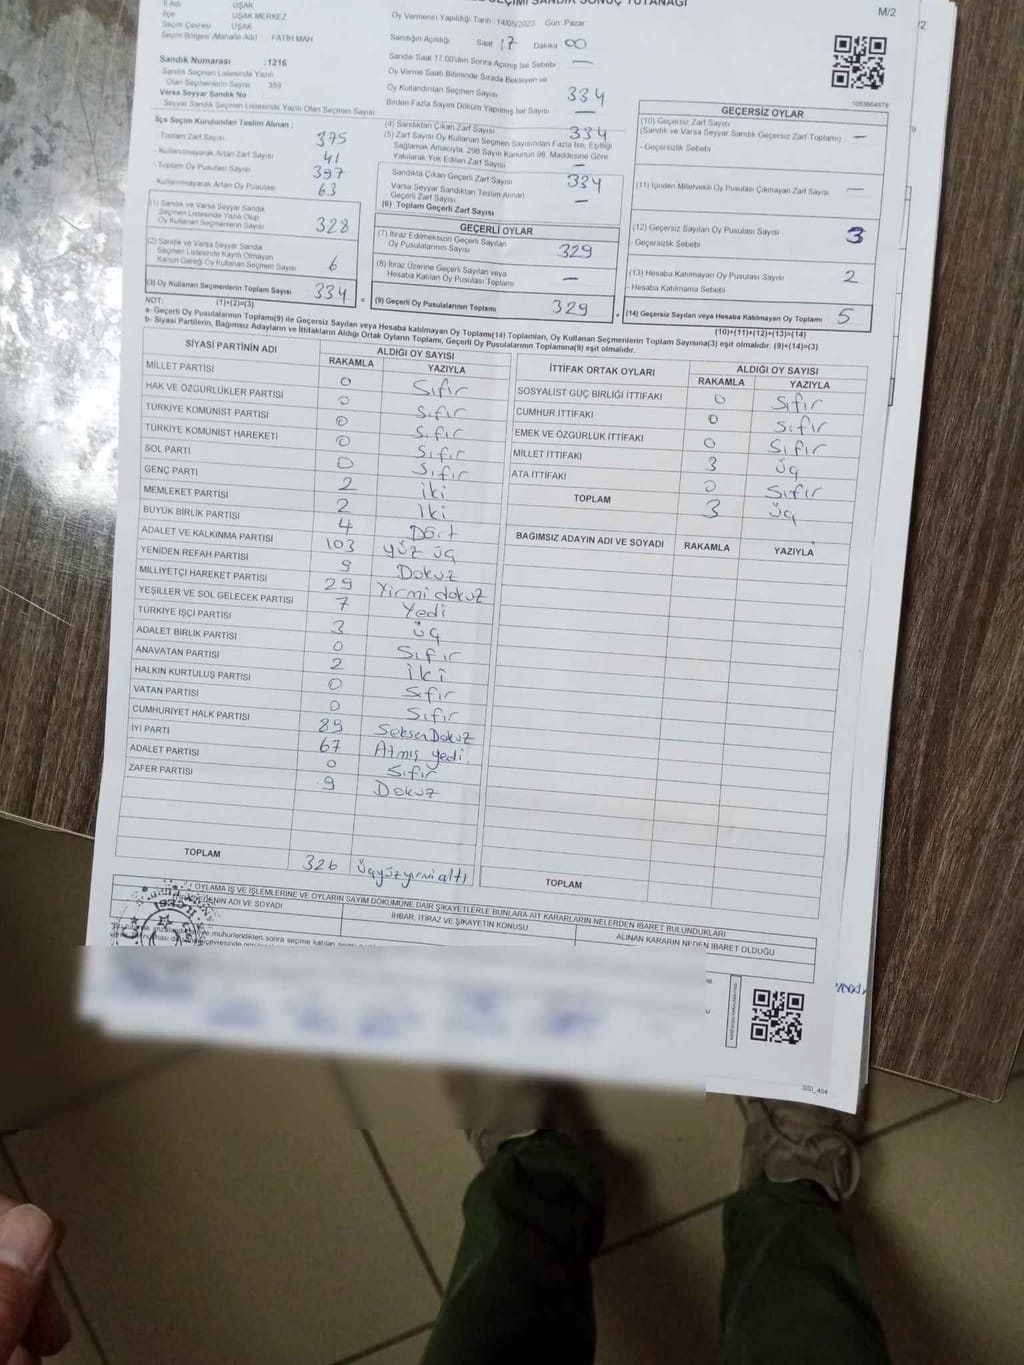 SEÇİMİ SANDIK SONUÇ TUTANAĞI
M/2
İl Adı UŞAK
İlçe UŞAK MERKEZ
Seçim Çevresi UŞAK
Seçim Bölgesi (Mahalle Adı) FATİH MAH.
Sandık Numarası :1216
Sandık Seçmen Listesinde Yazılı
Olan Seçmenlerin Sayısı 359
Varsa Seyyar Sandık No
Seyyar Sandık Seçmen Listesinde Yazılı Olan Seçmen Sayısı
Oy Vermenin Yapıldığı Tarih :14/05/2023 Gün: Pazar
Sandığın Açıldığı Saat 17 Dakika 00
Sandık Saat 17.00'den Sonra Açılmış İse Sebebi —
Oy Verme Saati Bitiminde Sırada Bekleyen ve
Oy Kullandırılan Seçmen Sayısı 334
Birden Fazla Sayım Döküm Yapılmış İse Sayısı —
1083664878
İlçe Seçim Kurulundan Teslim Alınan :
- Toplam Zarf Sayısı 375
- Kullanılmayarak Artan Zarf Sayısı 41
- Toplam Oy Pusulası Sayısı 397
- Kullanılmayarak Artan Oy Pusulası 63
(1) Sandık ve Varsa Seyyar Sandık
Seçmen Listesinde Yazılı Olup
Oy Kullanan Seçmenlerin Sayısı 328
(2) Sandık ve Varsa Seyyar Sandık
Seçmen Listesinde Kayıtlı Olmayan
Kanun Gereği Oy Kullanan Seçmen Sayısı 6
(3) Oy Kullanan Seçmenlerin Toplam Sayısı 334
(1)+(2)=(3)
(4) Sandıktan Çıkan Zarf Sayısı 334
(5) Zarf Sayısı Oy Kullanan Seçmen Sayısından Fazla İse, Eşitliği
Sağlamak Amacıyla, 298 Sayılı Kanunun 98. Maddesine Göre
Yakılarak Yok Edilen Zarf Sayısı —
Sandıkta Çıkan Geçerli Zarf Sayısı 334
Varsa Seyyar Sandıktan Teslim Alınan
Geçerli Zarf Sayısı —
(6) Toplam Geçerli Zarf Sayısı
GEÇERLİ OYLAR
(7) İtiraz Edilmeksizin Geçerli Sayılan
Oy Pusulalarının Sayısı 329
(8) İtiraz Üzerine Geçerli Sayılan veya
Hesaba Katılan Oy Pusulası Toplamı —
= (9) Geçerli Oy Pusulalarının Toplamı 329
GEÇERSİZ OYLAR
(10) Geçersiz Zarf Sayısı
(Sandık ve Varsa Seyyar Sandık Geçersiz Zarf Toplamı) —
- Geçersizlik Sebebi
(11) İçinden Milletvekili Oy Pusulası Çıkmayan Zarf Sayısı —
(12) Geçersiz Sayılan Oy Pusulası Sayısı 3
- Geçersizlik Sebebi
(13) Hesaba Katılmayan Oy Pusulası Sayısı 2
- Hesaba Katılmama Sebebi
+ (14) Geçersiz Sayılan veya Hesaba Katılmayan Oy Toplamı 5
(10)+(11)+(12)+(13)=(14)
NOT:
a- Geçerli Oy Pusulalarının Toplamı(9) ile Geçersiz Sayılan veya Hesaba katılmayan Oy Toplamı(14) Toplamları, Oy Kullanan Seçmenlerin Toplam Sayısına(3) eşit olmalıdır. (9)+(14)=(3)
b- Siyasi Partilerin, Bağımsız Adayların ve İttifakların Aldığı Ortak Oyların Toplamı, Geçerli Oy Pusulalarının Toplamına(9) eşit olmalıdır.
SİYASİ PARTİNİN ADI
ALDIĞI OY SAYISI
RAKAMLA YAZIYLA
MİLLET PARTİSİ 0 Sıfır
HAK VE ÖZGÜRLÜKLER PARTİSİ 0 Sıfır
TÜRKİYE KOMÜNİST PARTİSİ 0 Sıfır
TÜRKİYE KOMÜNİST HAREKETİ 0 Sıfır
SOL PARTİ 0 Sıfır
GENÇ PARTİ 2 iki
MEMLEKET PARTİSİ 2 iki
BÜYÜK BİRLİK PARTİSİ 4 Dört
ADALET VE KALKINMA PARTİSİ 103 yüz üç
YENİDEN REFAH PARTİSİ 9 Dokuz
MİLLİYETÇİ HAREKET PARTİSİ 29 Yirmi dokuz
YEŞİLLER VE SOL GELECEK PARTİSİ 7 Yedi
TÜRKİYE İŞÇİ PARTİSİ 3 üç
ADALET BİRLİK PARTİSİ 0 Sıfır
ANAVATAN PARTİSİ 2 iki
HALKIN KURTULUŞ PARTİSİ 0 Sıfır
VATAN PARTİSİ 0 Sıfır
CUMHURİYET HALK PARTİSİ 89 Seksen Dokuz
İYİ PARTİ 67 Atmış yedi
ADALET PARTİSİ 0 Sıfır
ZAFER PARTİSİ 9 Dokuz
TOPLAM 326 Üçyüzyirmialtı
İTTİFAK ORTAK OYLARI
ALDIĞI OY SAYISI
RAKAMLA YAZIYLA
SOSYALİST GÜÇ BİRLİĞİ İTTİFAKI 0 Sıfır
CUMHUR İTTİFAKI 0 Sıfır
EMEK VE ÖZGÜRLÜK İTTİFAKI 0 Sıfır
MİLLET İTTİFAKI 3 üç
ATA İTTİFAKI 0 Sıfır
TOPLAM 3 üç
BAĞIMSIZ ADAYIN ADI VE SOYADI RAKAMLA YAZIYLA
TOPLAM
OYLAMA İŞ VE İŞLEMLERİNE VE OYLARIN SAYIM DÖKÜMÜNE DAİR ŞİKAYETLERLE BUNLARA AİT KARARLARIN NELERDEN İBARET BULUNDUKLARI
EDENİN ADI VE SOYADI
İHBAR, İTİRAZ VE ŞİKAYETİN KONUSU
ALINAN KARARIN NEDEN İBARET OLDUĞU
SSİ_404